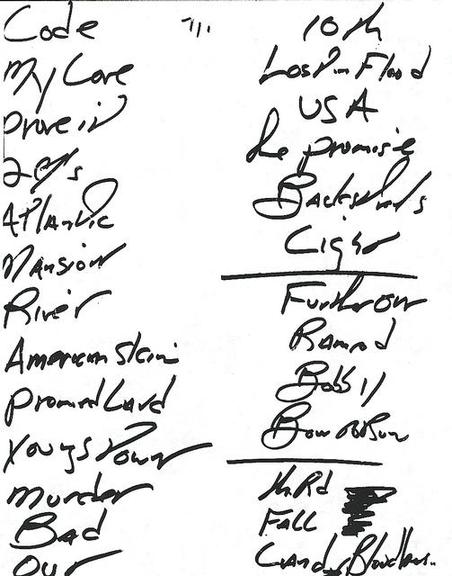 Code
My Love
Prove it
Atlantic
Mansion
River
American Skin
Promised Land
Youngstown
Murder
Bad
Out
10th
Lost in Flood
USA
The promise
Backstreets
Light
Further on
Ramrod
Bobby
Born to Run
Third
Fall
Land